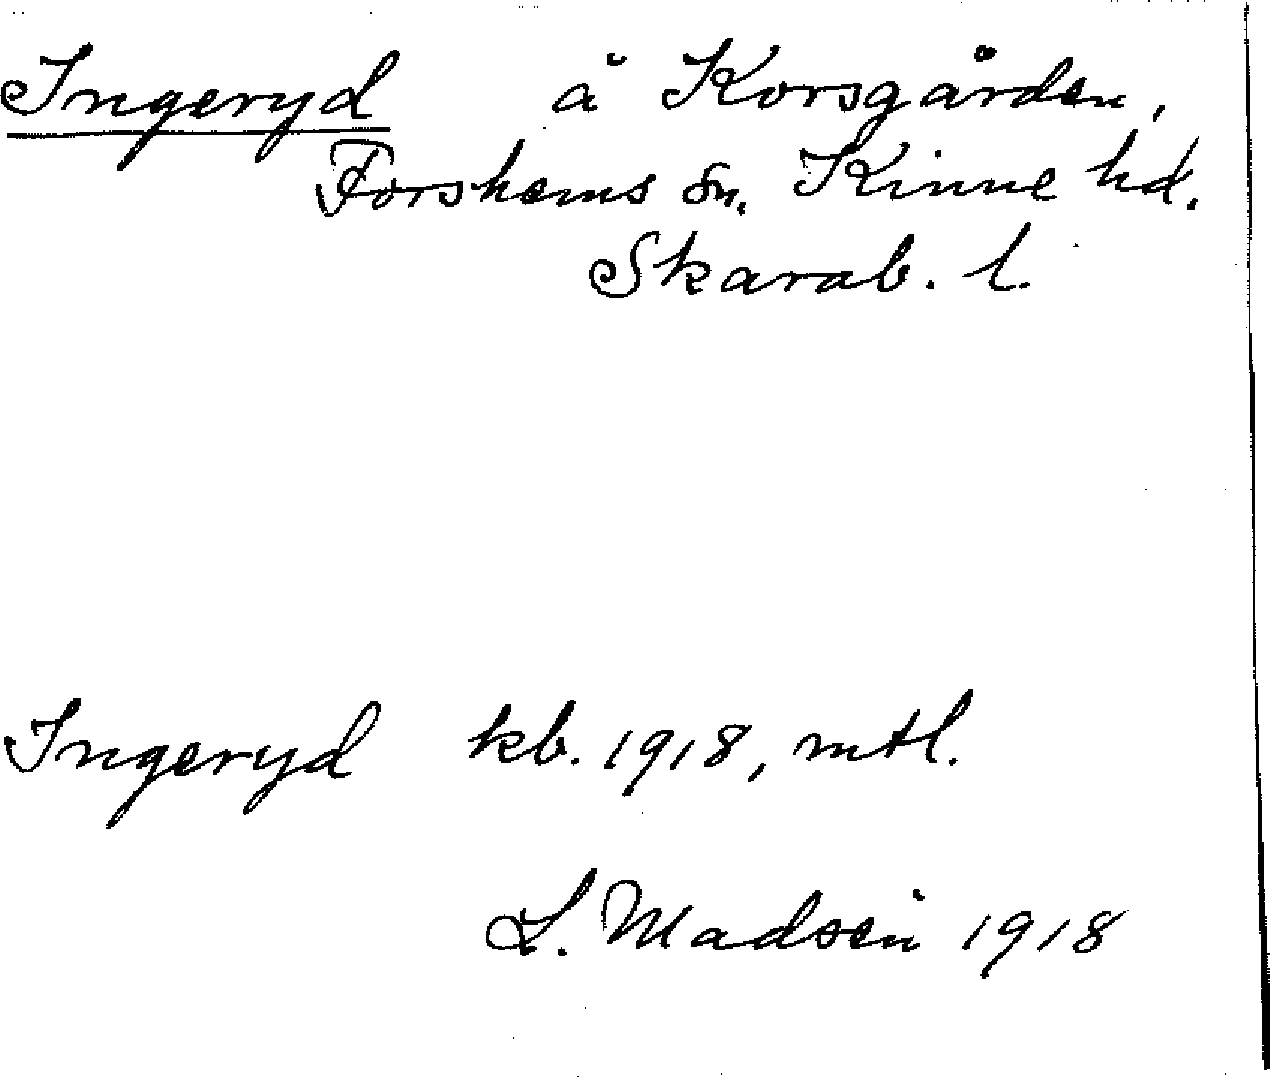 Ingeryd å Korsgården,
Forshems sn. Kinne hd.
Skarab. l.
Ingeryd kb. 1918, mtl.
L. Madsén 1918